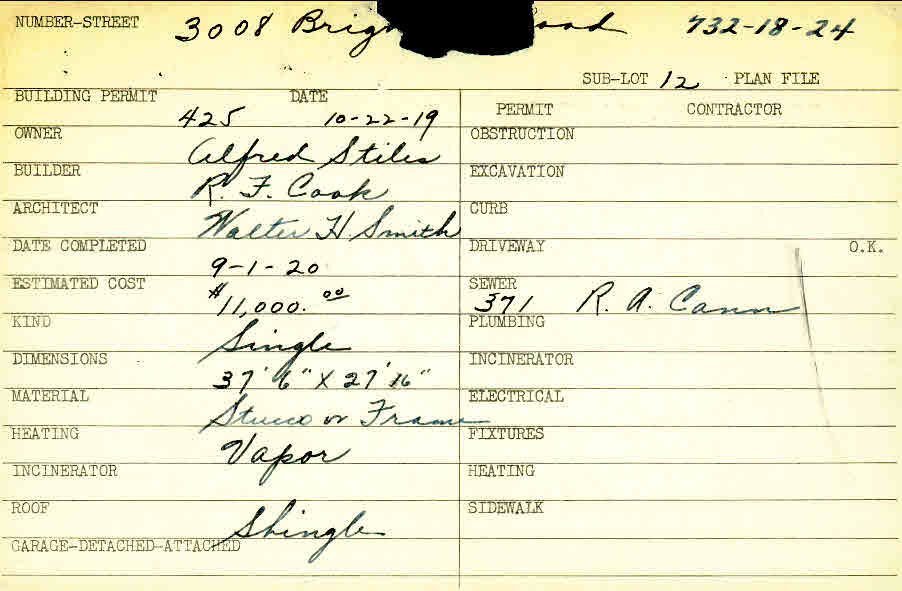 NUMBER-STREET 3008 Brig oad 732-18-24
SUB-LOT 12 PLAN FILE
BUILDING PERMIT 425 DATE 10-22-19
PERMIT CONTRACTOR
OWNER Alfred Stiles
OBSTRUCTION
BUILDER R. F. Cook
EXCAVATION
ARCHITECT Walter H. Smith
CURB
DATE COMPLETED 9-1-20
DRIVEWAY O.K.
ESTIMATED COST $11,000.00
SEWER 371 R. A. Cann
KIND Single
PLUMBING
DIMENSIONS 37' 6" X 27' 16"
INCINERATOR
MATERIAL Stucco or Frame
ELECTRICAL
HEATING Vapor
FIXTURES
INCINERATOR
HEATING
ROOF Shingle
SIDEWALK
GARAGE-DETACHED-ATTACHED